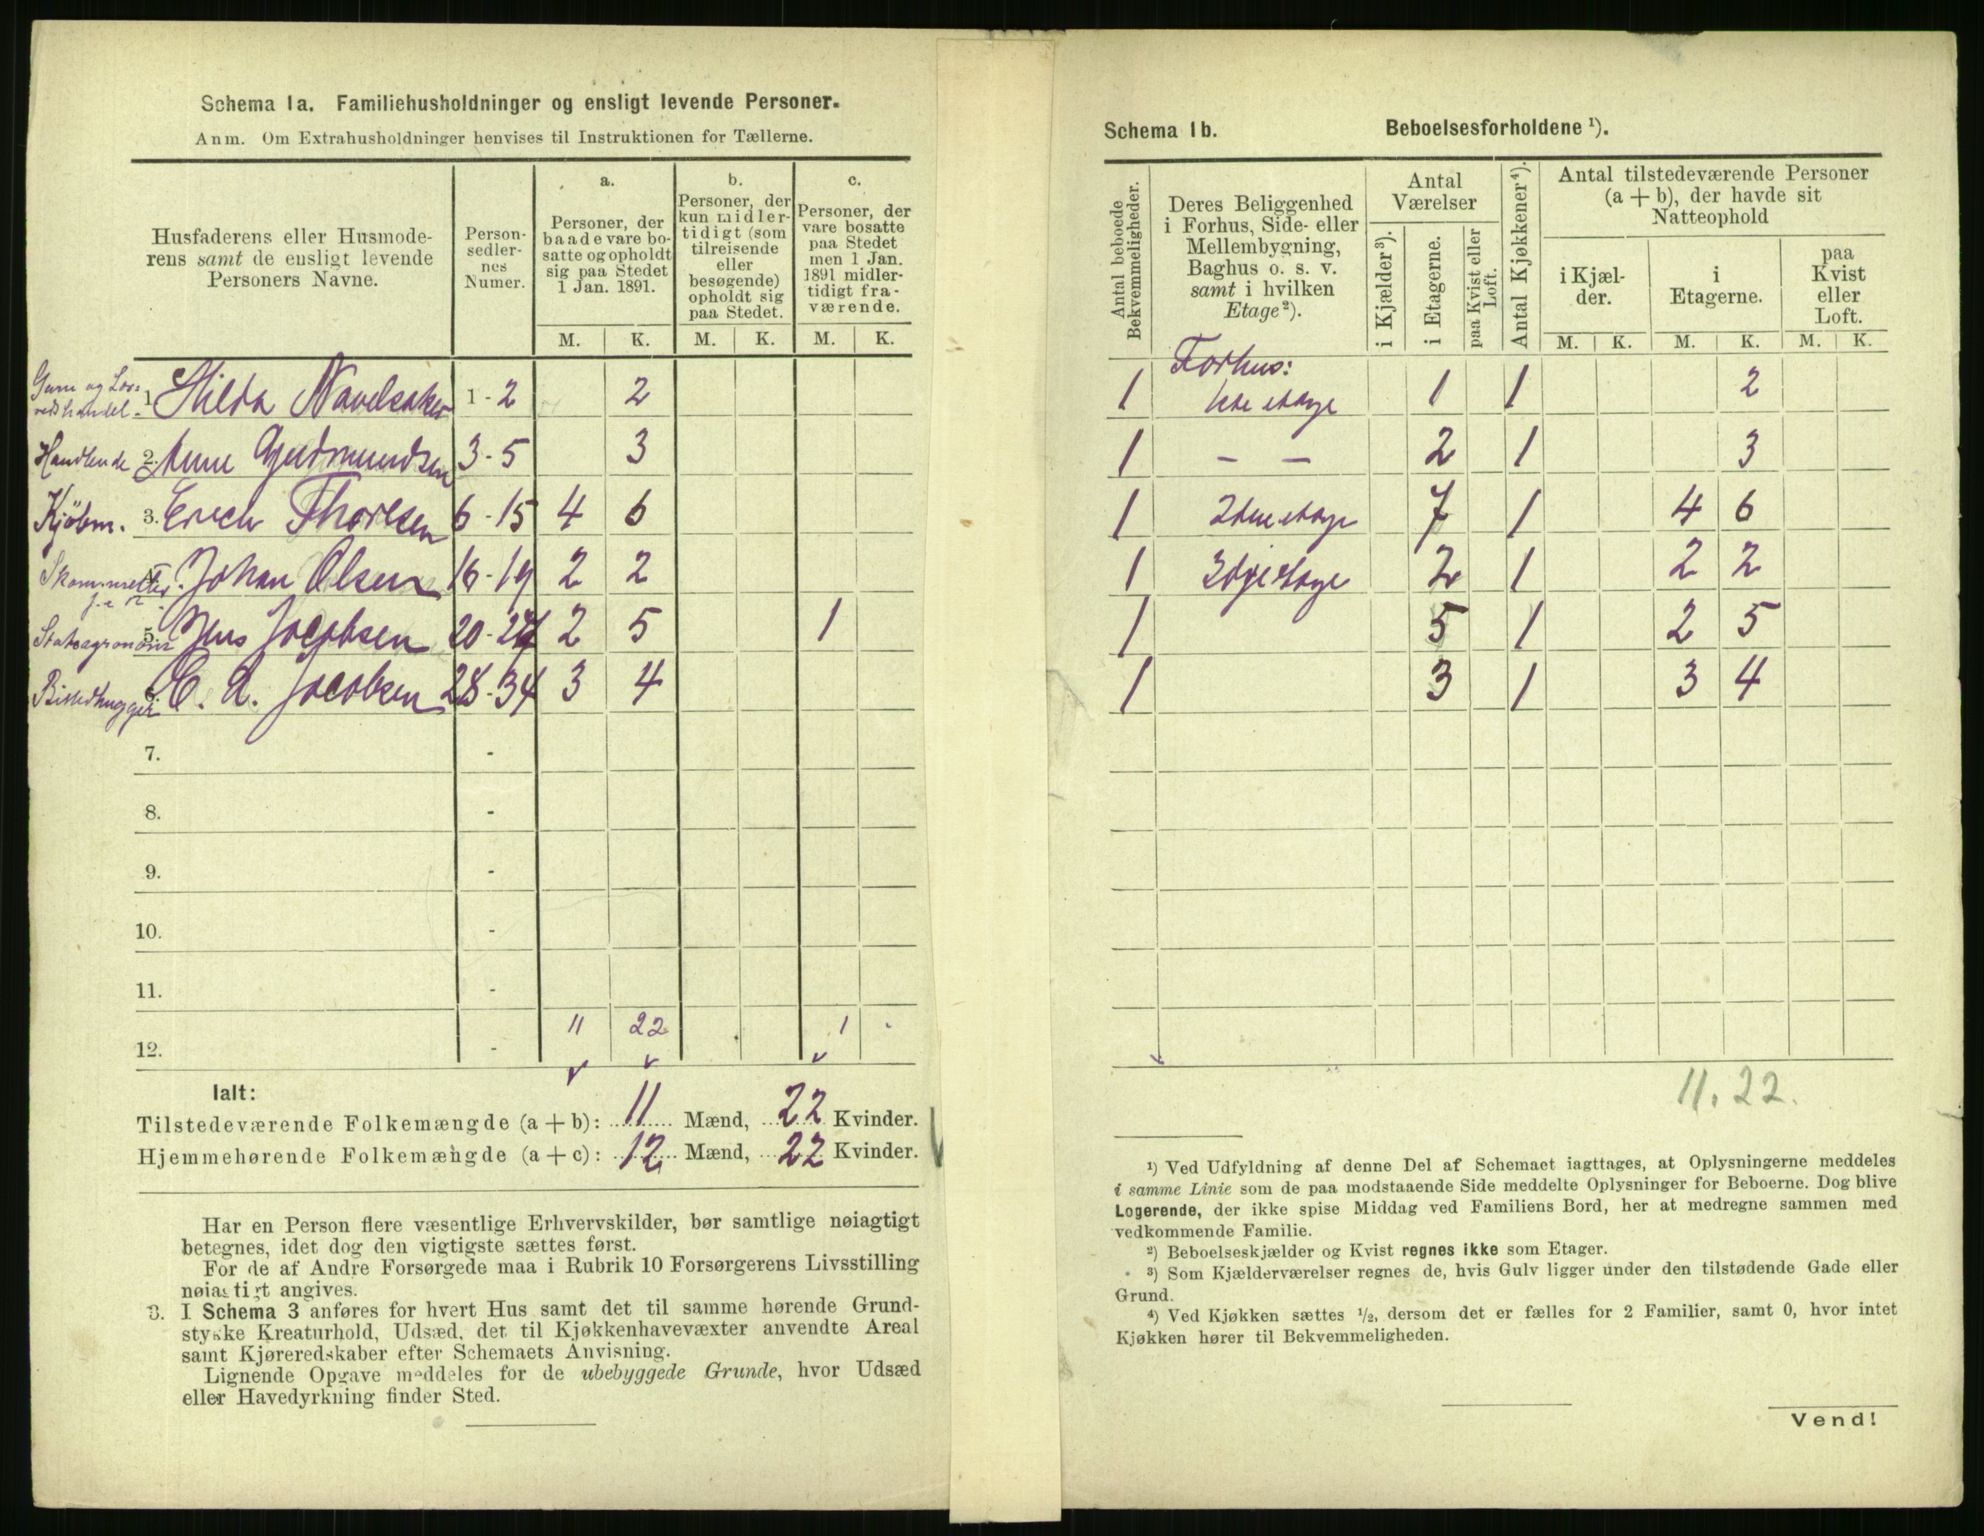 Schema 1a. Familiehusholdninger og ensligt levende Personer.
Anm. Om Extrahusholdninger henvises til Instruktionen for Tællerne.
Husfaderens eller Husmode-
rens samt de ensligt levende
Personers Navne.
Person-
sedler-
nes
Numer.
a.
Personer, der
baade vare bo-
satte og opholdt
sig paa Stedet
1 Jan. 1891.
b.
Personer, der
kun midler-
tidigt (som
tilreisende
eller
besøgende)
opholdt sig
paa Stedet.
c.
Personer, der
vare bosatte
paa Stedet
men 1 Jan.
1891 midler-
tidigt fra-
værende.
M. K. M. K. M. K.
Garn og
1. Hilda Navelsaker 1-2 2
Handlende 2. Anne Gudmundsen 3-5 3
Kjöbm. 3. Erich Thorlsen 6-15 4 6
Johan Olsen 16-19 2 2
Statsagronom 5. Jens Jacobsen 20-27 2 5 1
Billedhugger 6. C. L. Jacobsen 28-34 3 4
7. -
8. -
9. -
10. -
11. -
11 22 1
12. -
Ialt:
Tilstedeværende Folkemængde (a + b): 11 Mænd, 22 Kvinder.
Hjemmehørende Folkemængde (a + c): 12 Mænd, 22 Kvinder.
Har en Person flere væsentlige Erhvervskilder, bør samtlige nøiagtigt
betegnes, idet dog den vigtigste sættes først.
For de af Andre Forsørgede maa i Rubrik 10 Forsørgerens Livsstilling
nøiagtigt angives.
3. I Schema 3 anføres for hvert Hus samt det til samme hørende Grund-
stykke Kreaturhold, Udsæd, det til Kjøkkenhavevæxter anvendte Areal
samt Kjøreredskaber efter Schemaets Anvisning.
Lignende Opgave meddeles for de ubebyggede Grunde, hvor Udsæd
eller Havedyrkning finder Sted.
Schema 1b. Beboelsesforholdene ¹).
Antal beboede
Bekvemmeligheder.
Deres Beliggenhed
i Forhus, Side- eller
Mellembygning,
Baghus o. s. v.
samt i hvilken
Etage ²).
Antal
Værelser
i Kjælder ³).
i Etagerne.
paa Kvist eller
Loft.
Antal Kjøkkener ⁴).
Antal tilstedeværende Personer
(a + b), der havde sit
Natteophold
i Kjæl-
der.
i
Etagerne.
paa
Kvist
eller
Loft.
M. K. M. K. M. K.
Forhus:
1 1ste etage 1 1 2
1 — — 2 1 3
1 2den etage 7 1 4 6
1 3dje etage 2 1 2 2
1 5 1 2 5
1 3 1 3 4
11. 22.
¹) Ved Udfyldning af denne Del af Schemaet iagttages, at Oplysningerne meddeles
i samme Linie som de paa modstaaende Side meddelte Oplysninger for Beboerne. Dog blive
Logerende, der ikke spise Middag ved Familiens Bord, her at medregne sammen med
vedkommende Familie.
²) Beboelseskjælder og Kvist regnes ikke som Etager.
³) Som Kjælderværelser regnes de, hvis Gulv ligger under den tilstødende Gade eller
Grund.
⁴) Ved Kjøkken sættes ½, dersom det er fælles for 2 Familier, samt 0, hvor intet
Kjøkken hører til Bekvemmeligheden.
Vend!